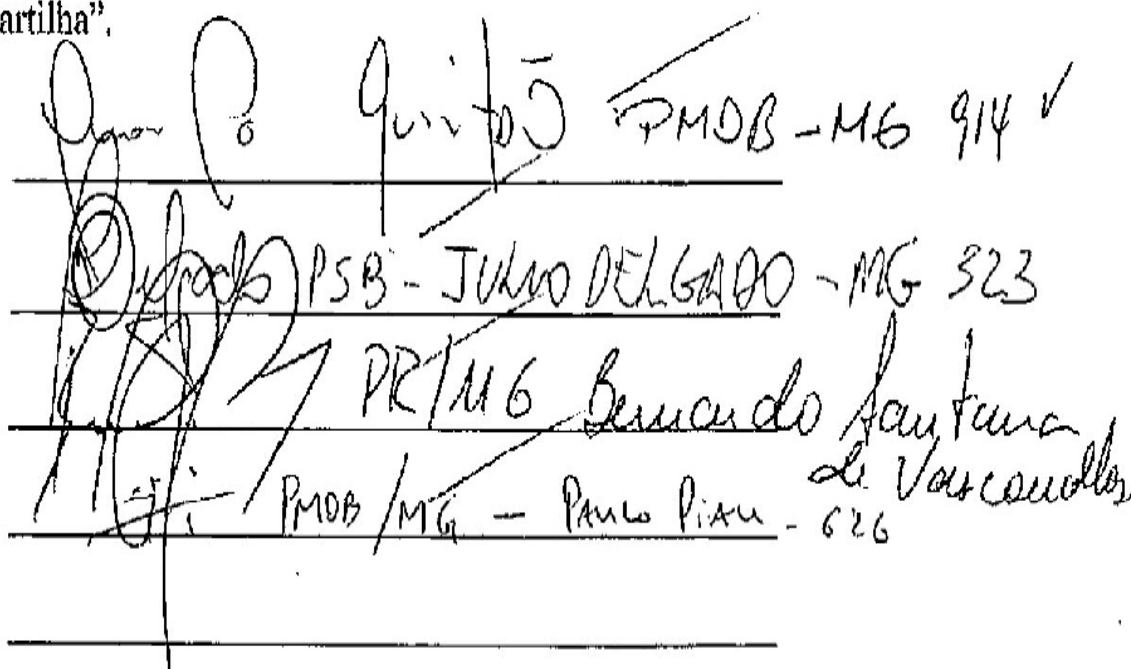 artilha”.
Quintão PMDB-MG 914
Delgado PSB - JULIO DELGADO - MG 323
PR/MG Bernardo Santana
de Vasconcellos
PMDB/MG - PAULO PIAU - 626